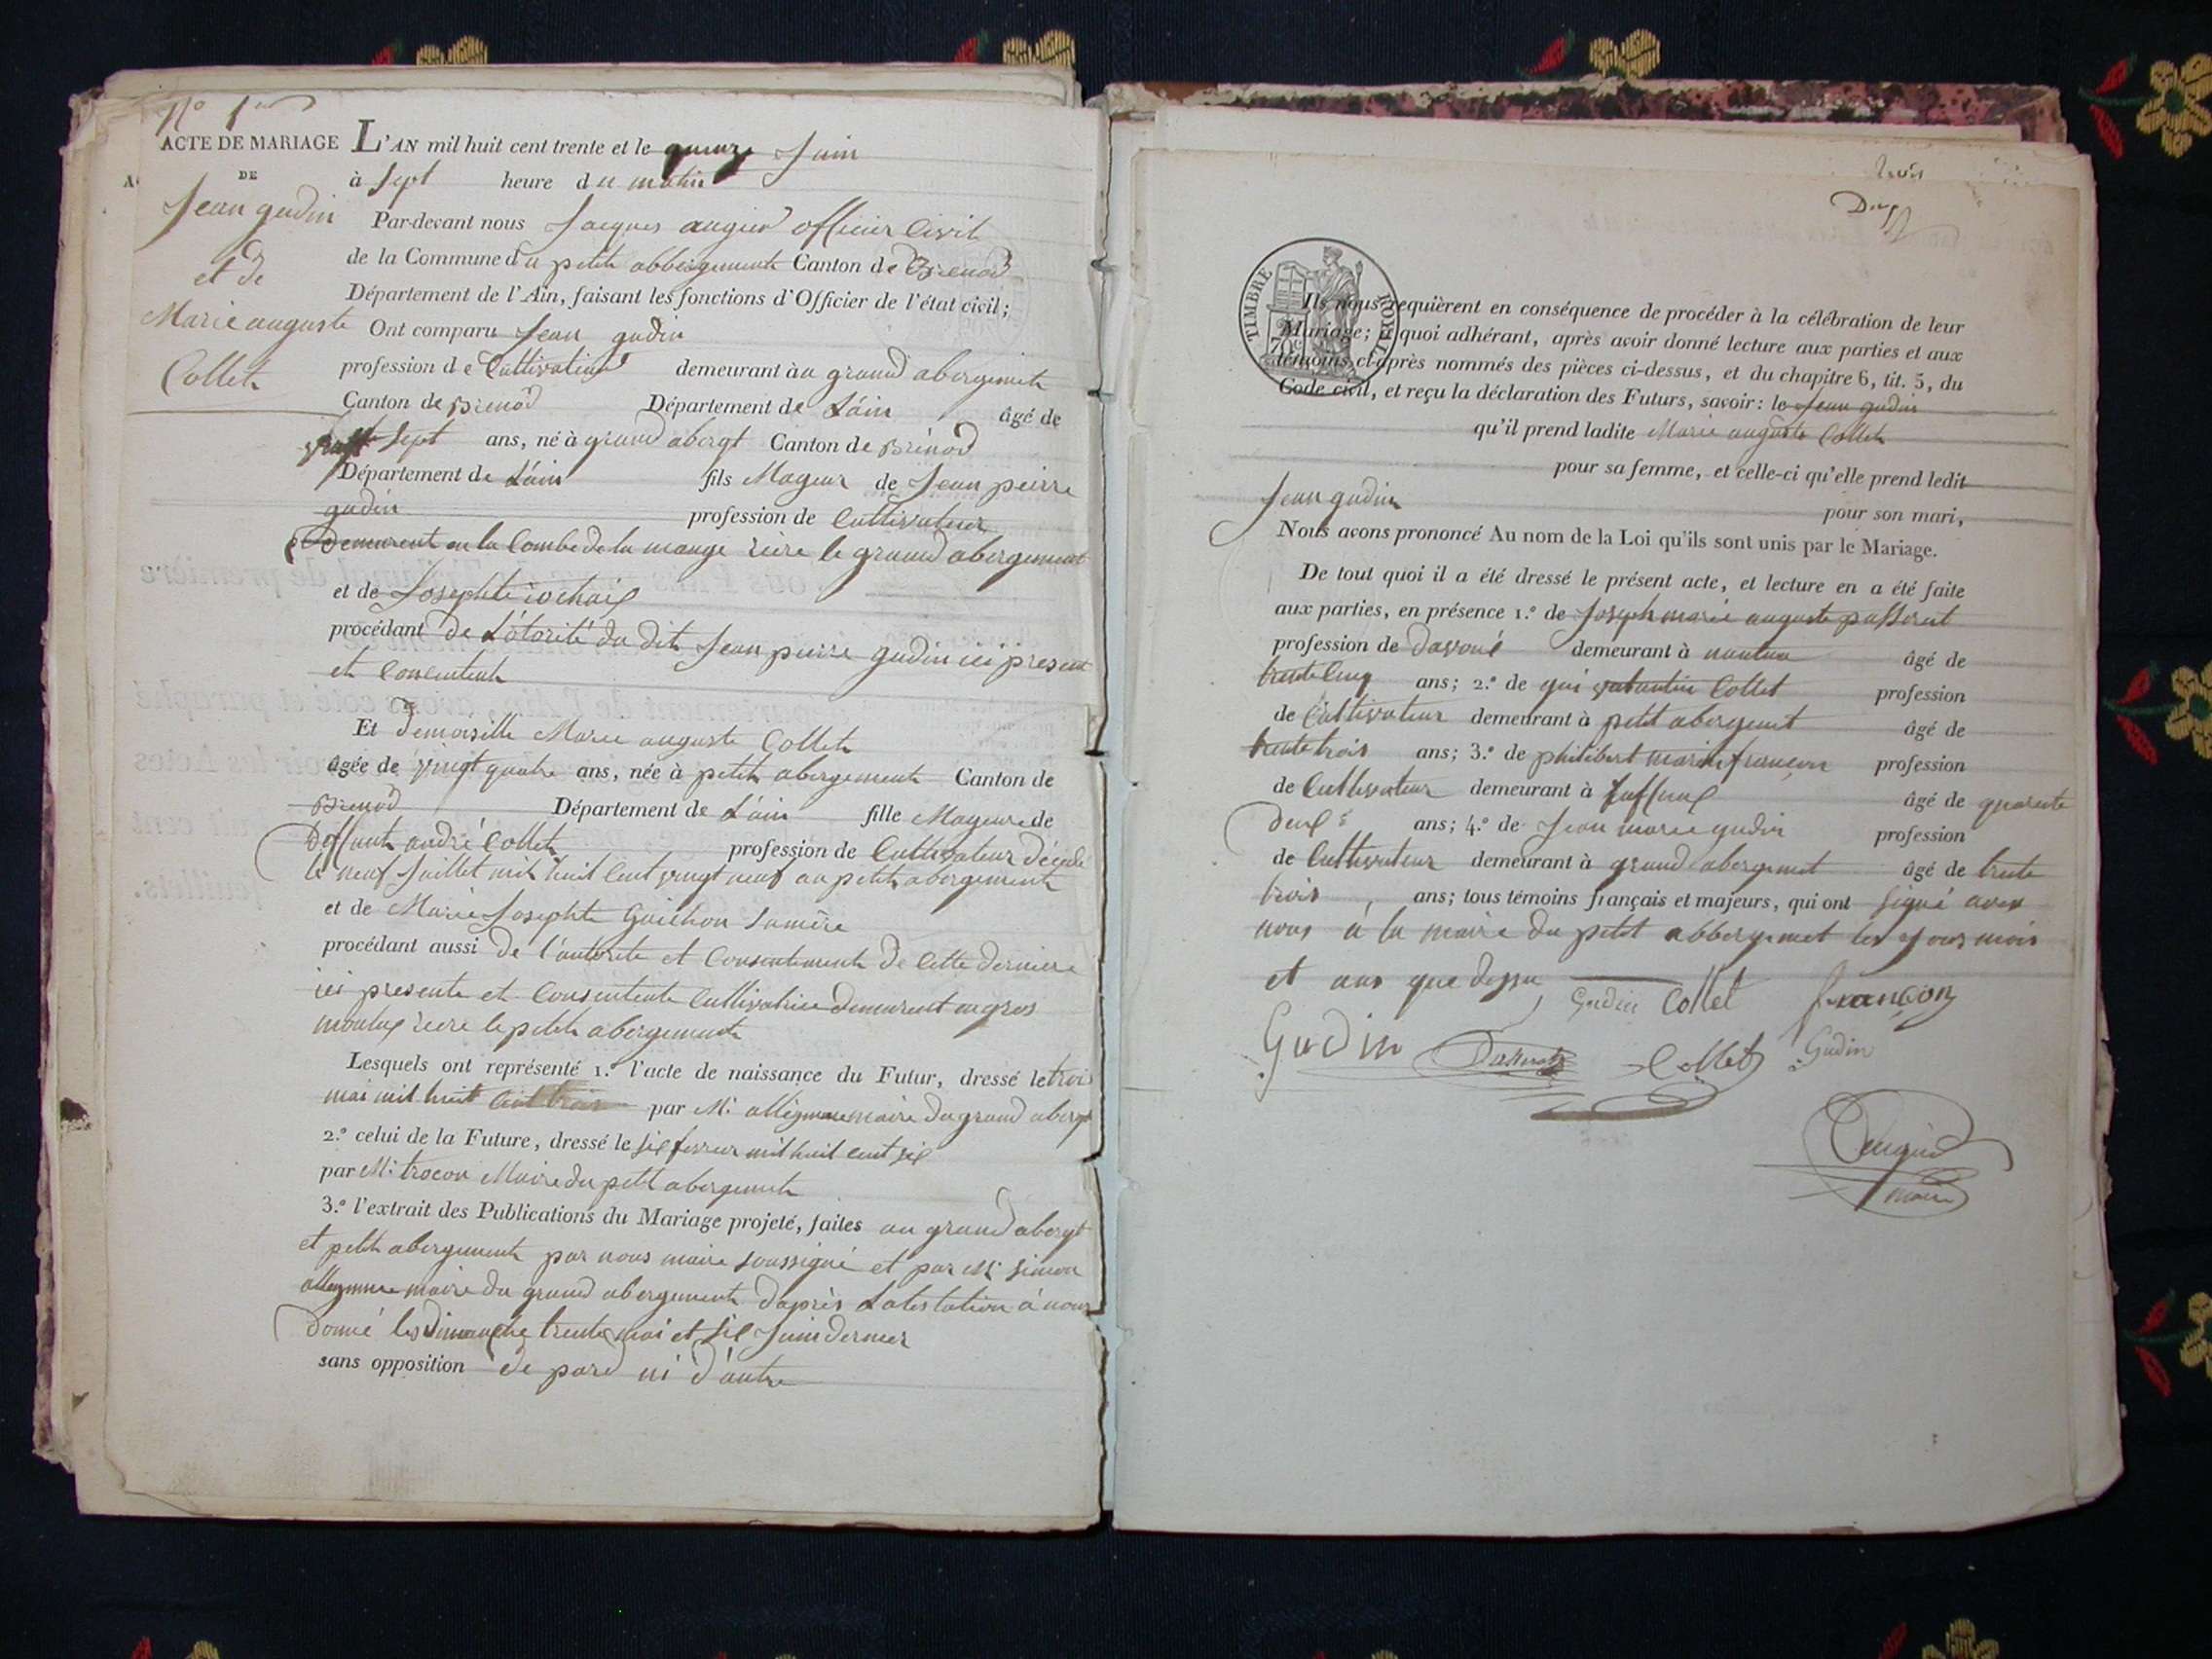 N° 1er
ACTE DE MARIAGE
DE
Jean gudin
et de
Marie auguste
Collet
L'AN mil huit cent trente et le quinze Juin
à Sept heure du matin
Par-devant nous Jacques augier officier Civil
de la Commune du petit abbergement Canton de Brenod
Département de l'Ain, faisant les fonctions d'Officier de l'état civil;
Ont comparu Jean gudin
profession de Cultivateur demeurant à au grand abergement
Canton de Brenod Département de L'ain âgé de
vingt Sept ans, né à grand abergt Canton de Brénod
Département de L'ain fils Mageur de Jean peirre
gudin profession de Cultivateur
Demeurent en la Combe de la mange rière le grand abergement
et de Josephte
procédant de L'otorité du dit Jean peirre gudin ici présent
et Consentent
Et Demoiselle Marie auguste Collet
âgée de vingt quatre ans, née à petit abergement Canton de
Brenod Département de L'ain fille Mageure de
Deffunt andré Collet profession de Cultivateur décédé
le neuf Juillet mil huit Cent vingt neuf au petit abergement
et de Marie Josephte Guichon Sa mère
procédant aussi de l'autorité et Consentement de Cette dernière
ici presente et Consentente Cultivatrice demeurent au gros
moulux rière le petit abergement
Lesquels ont représenté 1.° l'acte de naissance du Futur, dressé le trois
mai mil huit Cent trois par M. allegnme maire du grand abergt
2.° celui de la Future, dressé le six fevrier mil huit cent six
par M. trocon Maire du petit abergement
3.° l'extrait des Publications du Mariage projeté, faites au grand abergt
et petit abergement par nous maire soussigné et par M. Simeon
maire du grand abergement d'après L'atestation à nous
donné les dimanche trente mai et six Juin dernier
sans opposition de pard ni d'autre
Deux
TIMBRE ROYAL
70c
Ils nous requièrent en conséquence de procéder à la célébration de leur
Mariage; à quoi adhérant, après avoir donné lecture aux parties et aux
témoins ci-après nommés des pièces ci-dessus, et du chapitre 6, tit. 5, du
Code civil, et reçu la déclaration des Futurs, savoir: le Jean gudin
qu'il prend ladite Marie auguste Collet
pour sa femme, et celle-ci qu'elle prend ledit
Jean gudin
pour son mari,
Nous avons prononcé Au nom de la Loi qu'ils sont unis par le Mariage.
De tout quoi il a été dressé le présent acte, et lecture en a été faite
aux parties, en présence 1.° de Joseph marie auguste passerat
profession de d'avoué demeurant à nantua âgé de
trente Cinq ans; 2.° de gui valantin Collet profession
de Cultivateur demeurant à petit abergement âgé de
trente trois ans; 3.° de philibert marin françon profession
de Cultivateur demeurant à âgé de quarente
deux ans; 4.° de Jean marie gudin profession
de Cultivateur demeurant à grand abergement âgé de trente
trois ans; tous témoins français et majeurs, qui ont signé avex
nous à la maire du petit abbergemet les Jour mois
et ans que dessu
Gudin Collet françon
Gudin Passerat Collet Gudin
Augier
maire